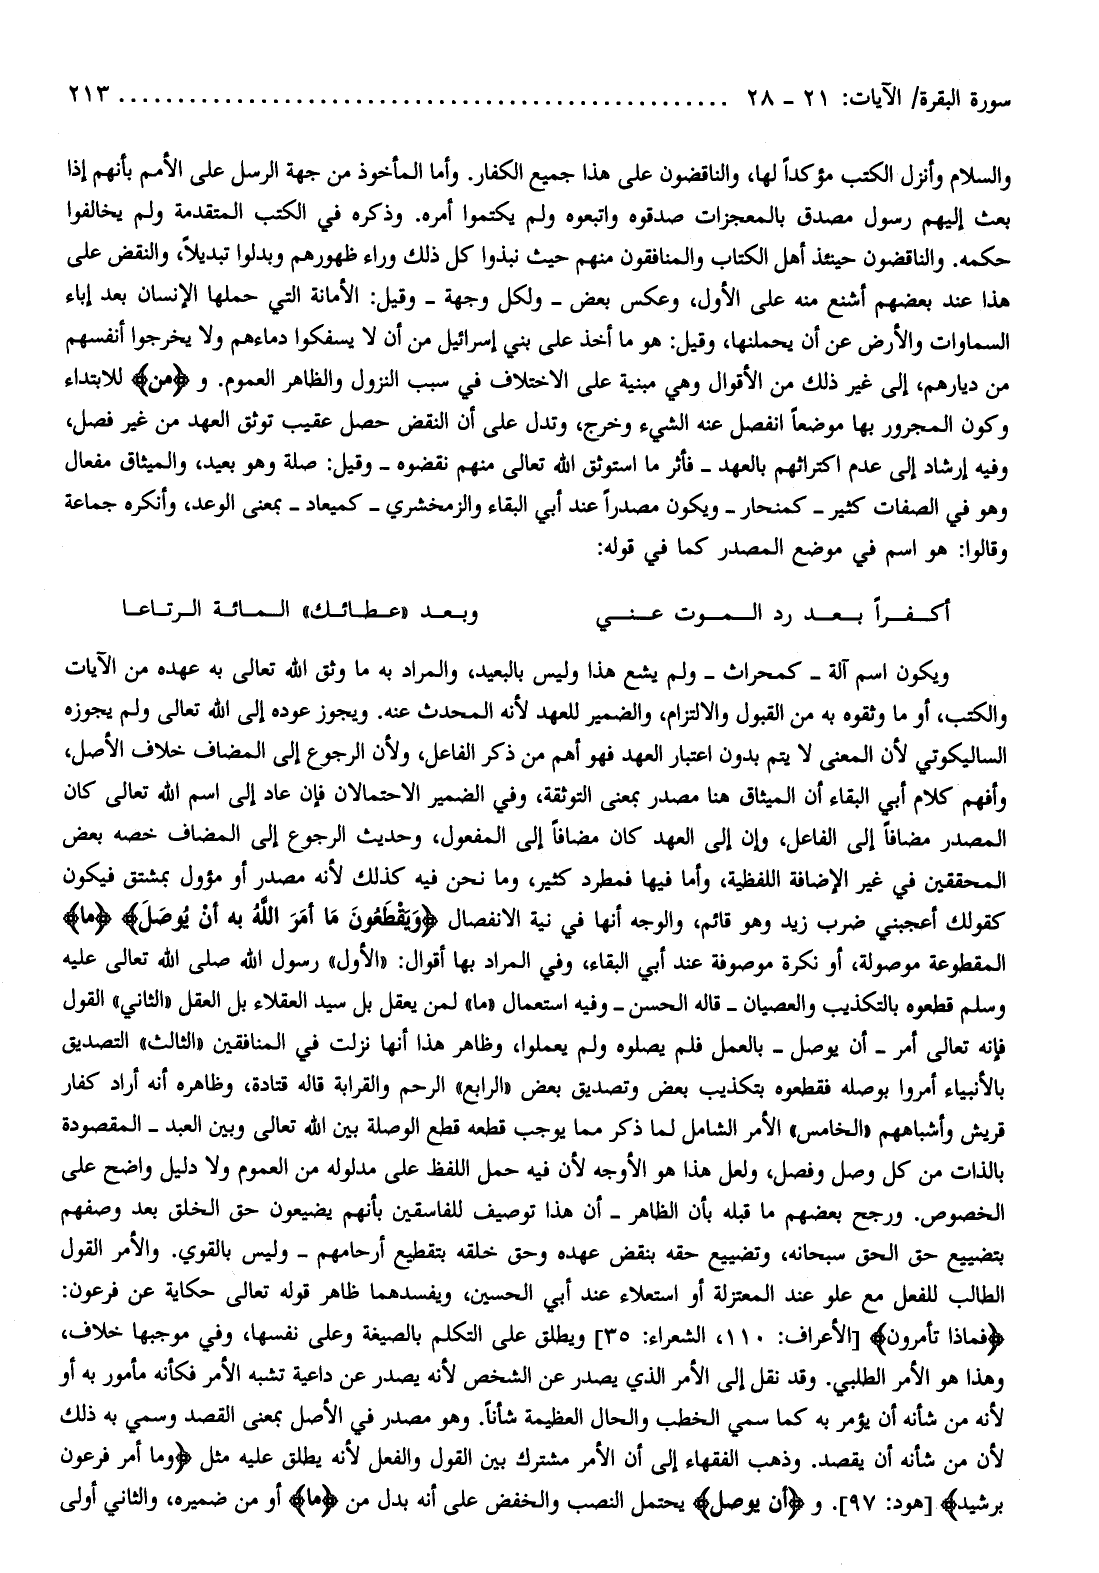 سورة البقرة/ الآيات: ٢١ - ٢٨ ................................................... ٢١٣
والسلام وأنزل الكتب مؤكداً لها، والناقضون على هذا جميع الكفار. وأما المأخوذ من جهة الرسل على الأمم بأنهم إذا
بعث إليهم رسول مصدق بالمعجزات صدقوه واتبعوه ولم يكتموا أمره. وذكره في الكتب المتقدمة ولم يخالفوا
حكمه. والناقضون حينئذ أهل الكتاب والمنافقون منهم حيث نبذوا كل ذلك وراء ظهورهم وبدلوا تبديلاً، والنقض على
هذا عند بعضهم أشنع منه على الأول، وعكس بعض ـ ولكل وجهة ـ وقيل: الأمانة التي حملها الإنسان بعد إباء
السماوات والأرض عن أن يحملنها، وقيل: هو ما أخذ على بني إسرائيل من أن لا يسفكوا دماءهم ولا يخرجوا أنفسهم
من ديارهم، إلى غير ذلك من الأقوال وهي مبنية على الاختلاف في سبب النزول والظاهر العموم. و ﴿من﴾ للابتداء
وكون المجرور بها موضعاً انفصل عنه الشيء وخرج، وتدل على أن النقض حصل عقيب توثق العهد من غير فصل،
وفيه إرشاد إلى عدم اكتراثهم بالعهد ـ فأثر ما استوثق الله تعالى منهم نقضوه ـ وقيل: صلة وهو بعيد، والميثاق مفعال
وهو في الصفات كثير ـ كمنحار ـ ويكون مصدراً عند أبي البقاء والزمخشري ـ كميعاد ـ بمعنى الوعد، وأنكره جماعة
وقالوا: هو اسم في موضع المصدر كما في قوله:
أكفراً بعد رد الموت عني وبعد «عطائك» المائة الرتاعا
ويكون اسم آلة ـ كمحراث ـ ولم يشع هذا وليس بالبعيد، والمراد به ما وثق الله تعالى به عهده من الآيات
والكتب، أو ما وثقوه به من القبول والالتزام، والضمير للعهد لأنه المحدث عنه. ويجوز عوده إلى الله تعالى ولم يجوزه
الساليكوتي لأن المعنى لا يتم بدون اعتبار العهد فهو أهم من ذكر الفاعل، ولأن الرجوع إلى المضاف خلاف الأصل،
وأفهم كلام أبي البقاء أن الميثاق هنا مصدر بمعنى التوثقة، وفي الضمير الاحتمالان فإن عاد إلى اسم الله تعالى كان
المصدر مضافاً إلى الفاعل، وإن إلى العهد كان مضافاً إلى المفعول، وحديث الرجوع إلى المضاف خصه بعض
المحققين في غير الإضافة اللفظية، وأما فيها فمطرد كثير، وما نحن فيه كذلك لأنه مصدر أو مؤول بمشتق فيكون
كقولك أعجبني ضرب زيد وهو قائم، والوجه أنها في نية الانفصال ﴿وَيَقْطَعُونَ مَا أمَرَ اللَّهُ به أنْ يُوصَلَ﴾ ﴿ما﴾
المقطوعة موصولة، أو نكرة موصوفة عند أبي البقاء، وفي المراد بها أقوال: «الأول» رسول الله صلى الله تعالى عليه
وسلم قطعوه بالتكذيب والعصيان ـ قاله الحسن ـ وفيه استعمال «ما» لمن يعقل بل سيد العقلاء بل العقل «الثاني» القول
فإنه تعالى أمر ـ أن يوصل ـ بالعمل فلم يصلوه ولم يعملوا، وظاهر هذا أنها نزلت في المنافقين «الثالث» التصديق
بالأنبياء أمروا بوصله فقطعوه بتكذيب بعض وتصديق بعض «الرابع» الرحم والقرابة قاله قتادة، وظاهره أنه أراد كفار
قريش وأشباههم «الخامس» الأمر الشامل لما ذكر مما يوجب قطعه قطع الوصلة بين الله تعالى وبين العبد ـ المقصودة
بالذات من كل وصل وفصل، ولعل هذا هو الأوجه لأن فيه حمل اللفظ على مدلوله من العموم ولا دليل واضح على
الخصوص. ورجح بعضهم ما قبله بأن الظاهر ـ أن هذا توصيف للفاسقين بأنهم يضيعون حق الخلق بعد وصفهم
بتضييع حق الحق سبحانه، وتضييع حقه بنقض عهده وحق خلقه بتقطيع أرحامهم ـ وليس بالقوي. والأمر القول
الطالب للفعل مع علو عند المعتزلة أو استعلاء عند أبي الحسين، ويفسدهما ظاهر قوله تعالى حكاية عن فرعون:
﴿فماذا تأمرون﴾ [الأعراف: ١١٠، الشعراء: ٣٥] ويطلق على التكلم بالصيغة وعلى نفسها، وفي موجبها خلاف،
وهذا هو الأمر الطلبي. وقد نقل إلى الأمر الذي يصدر عن الشخص لأنه يصدر عن داعية تشبه الأمر فكأنه مأمور به أو
لأنه من شأنه أن يؤمر به كما سمي الخطب والحال العظيمة شأناً. وهو مصدر في الأصل بمعنى القصد وسمي به ذلك
لأن من شأنه أن يقصد. وذهب الفقهاء إلى أن الأمر مشترك بين القول والفعل لأنه يطلق عليه مثل ﴿وما أمر فرعون
برشيد﴾ [هود: ٩٧]. و ﴿أن يوصل﴾ يحتمل النصب والخفض على أنه بدل من ﴿ما﴾ أو من ضميره، والثاني أولى